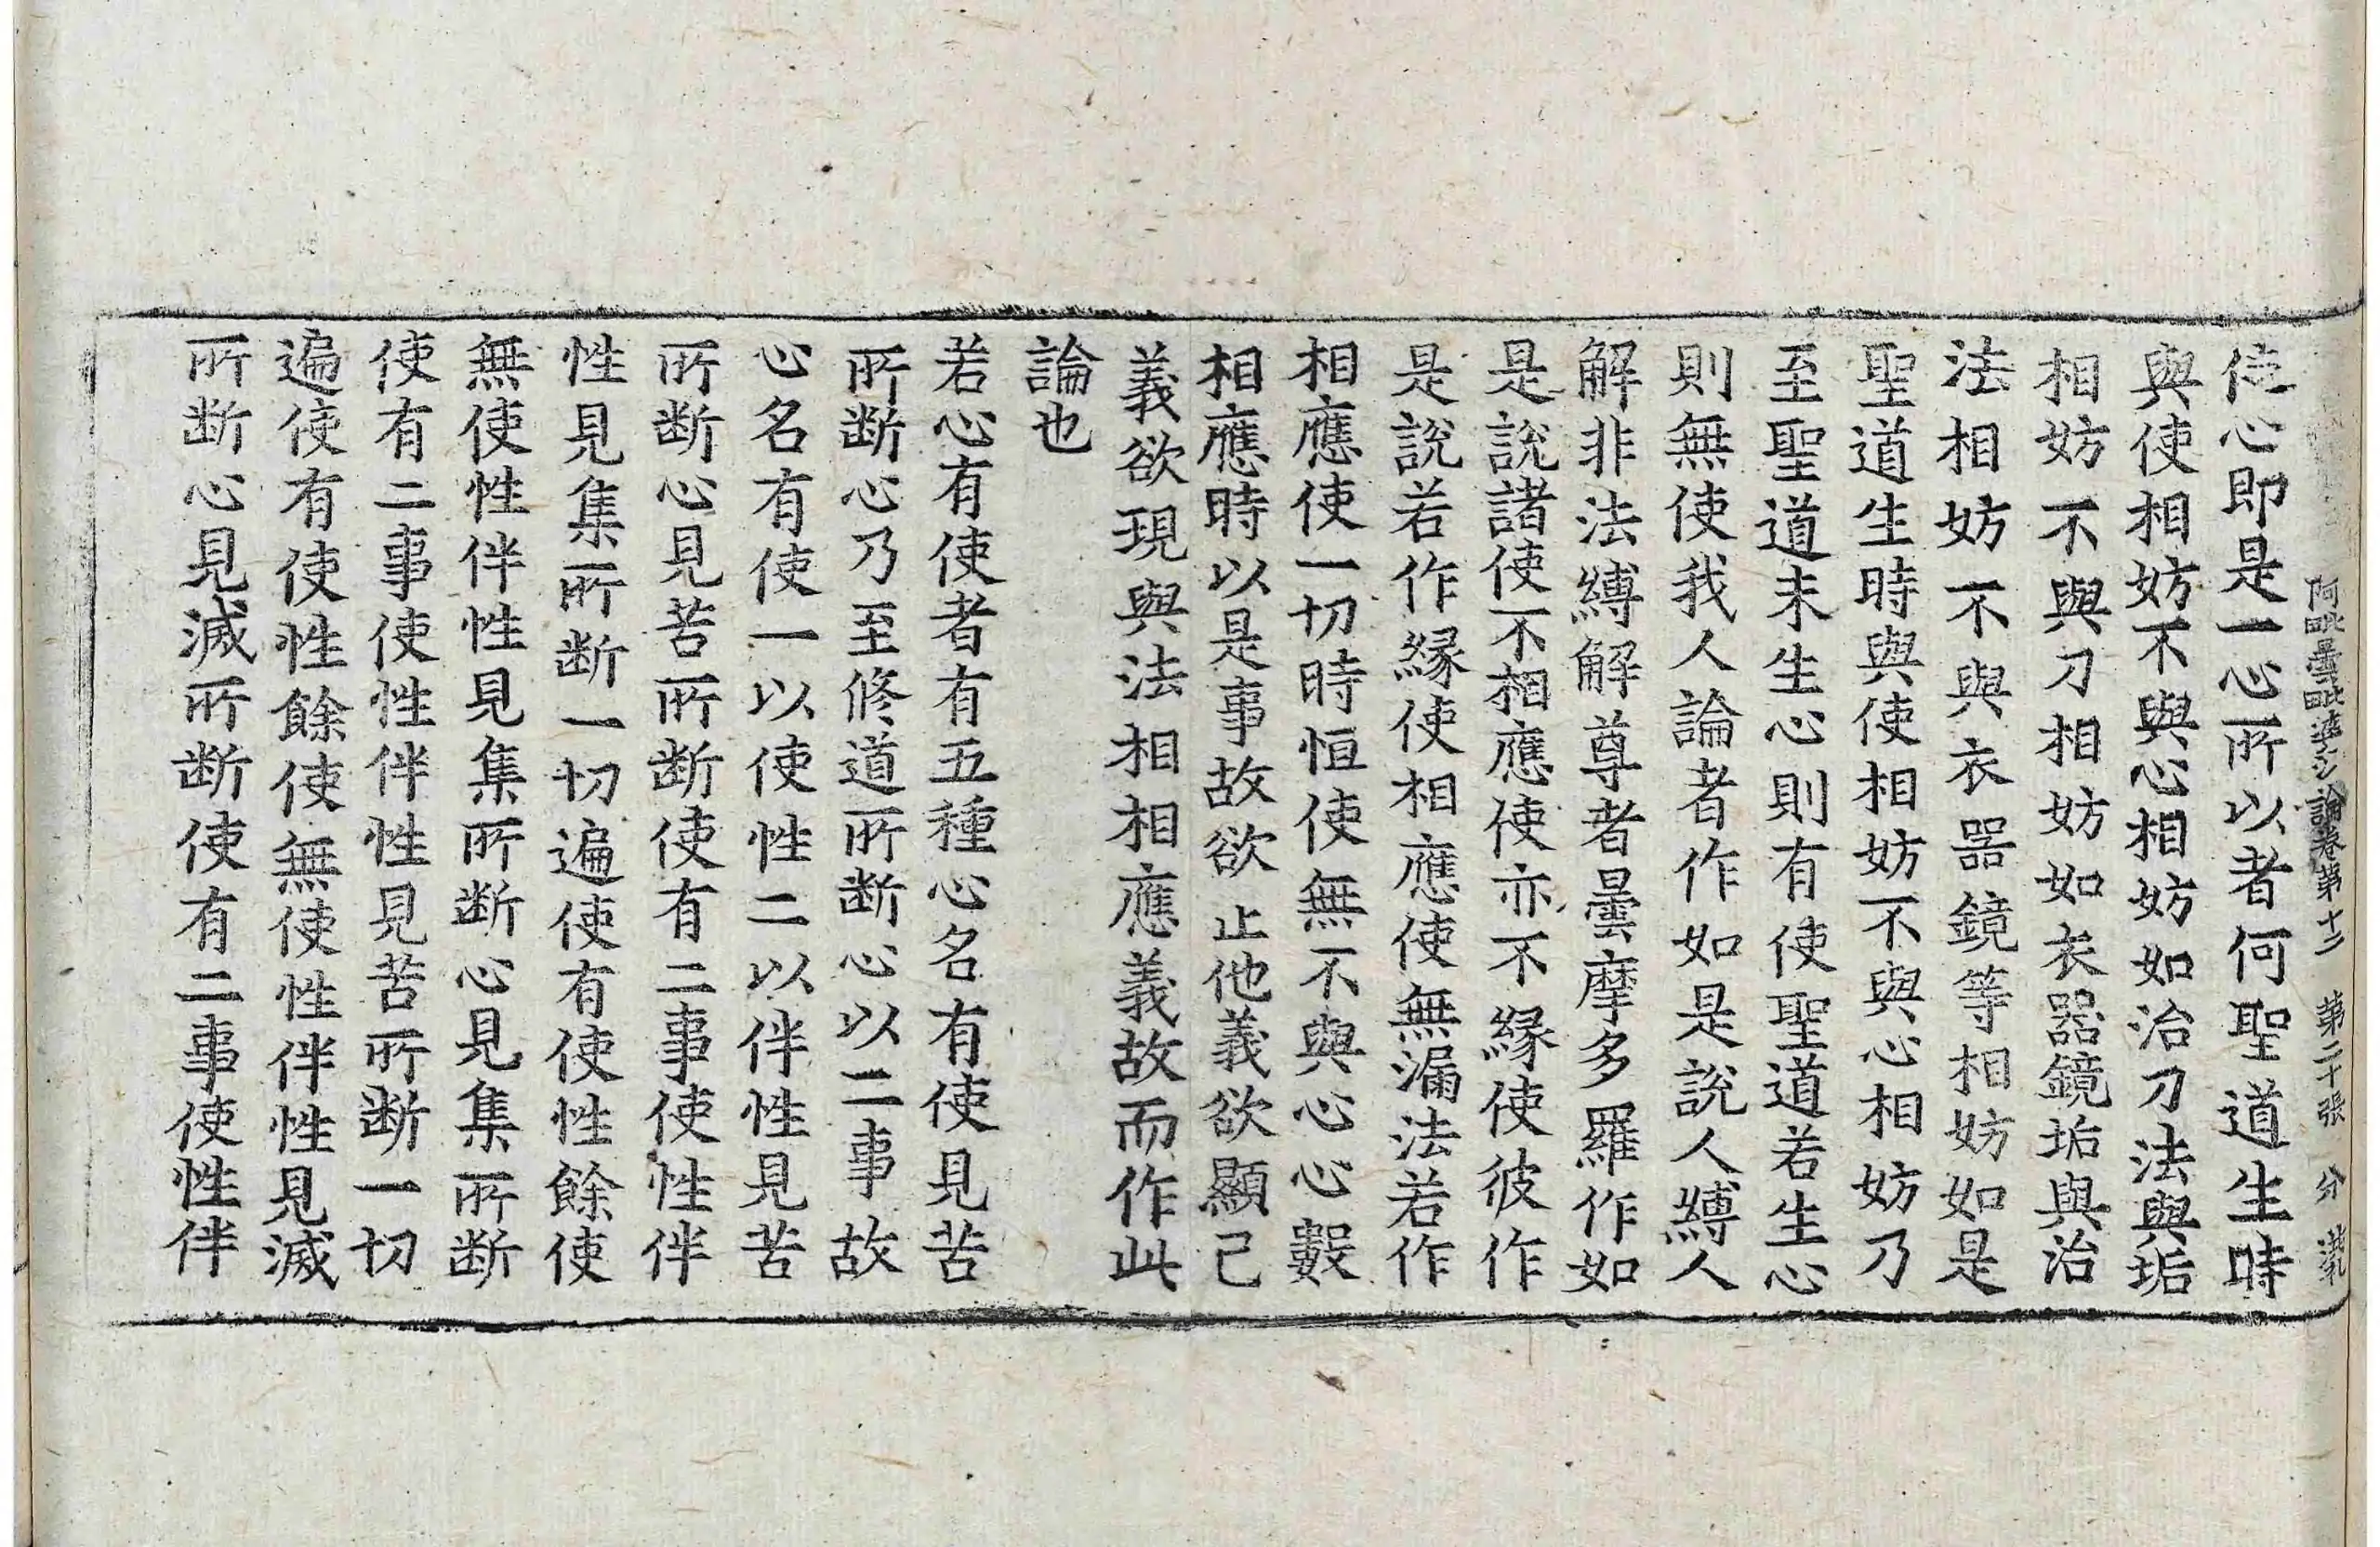 阿毗曇毗婆沙論卷第十二 第二十張 分
使心即是一心所以者何聖道生時
與使相妨不與心相妨如治刀法與垢
相妨不與刀相妨如衣器鏡垢與治
法相妨不與衣器鏡等相妨如是
聖道生時與使相妨不與心相妨乃
至聖道未生心則有使聖道若生心
則無使我人論者作如是說人縛人
解非法縛解尊者曇摩多羅作如
是說諸使不相應使亦不緣使彼作
是說若作緣使相應使無漏法若作
相應使一切時恒使無不與心心數
相應時以是事故欲止他義欲顯己
義欲現與法相相應義故而作此
論也
若心有使者有五種心名有使見苦
所断心乃至修道所断心以二事故
心名有使一以使性二以伴性見苦
所断心見苦所断使有二事使性伴
性見集所断一切遍使有使性餘使
無使性伴性見集所断心見集所断
使有二事使性伴性見苦所断一切
遍使有使性餘使無使性伴性見滅
所断心見滅所断使有二事使性伴